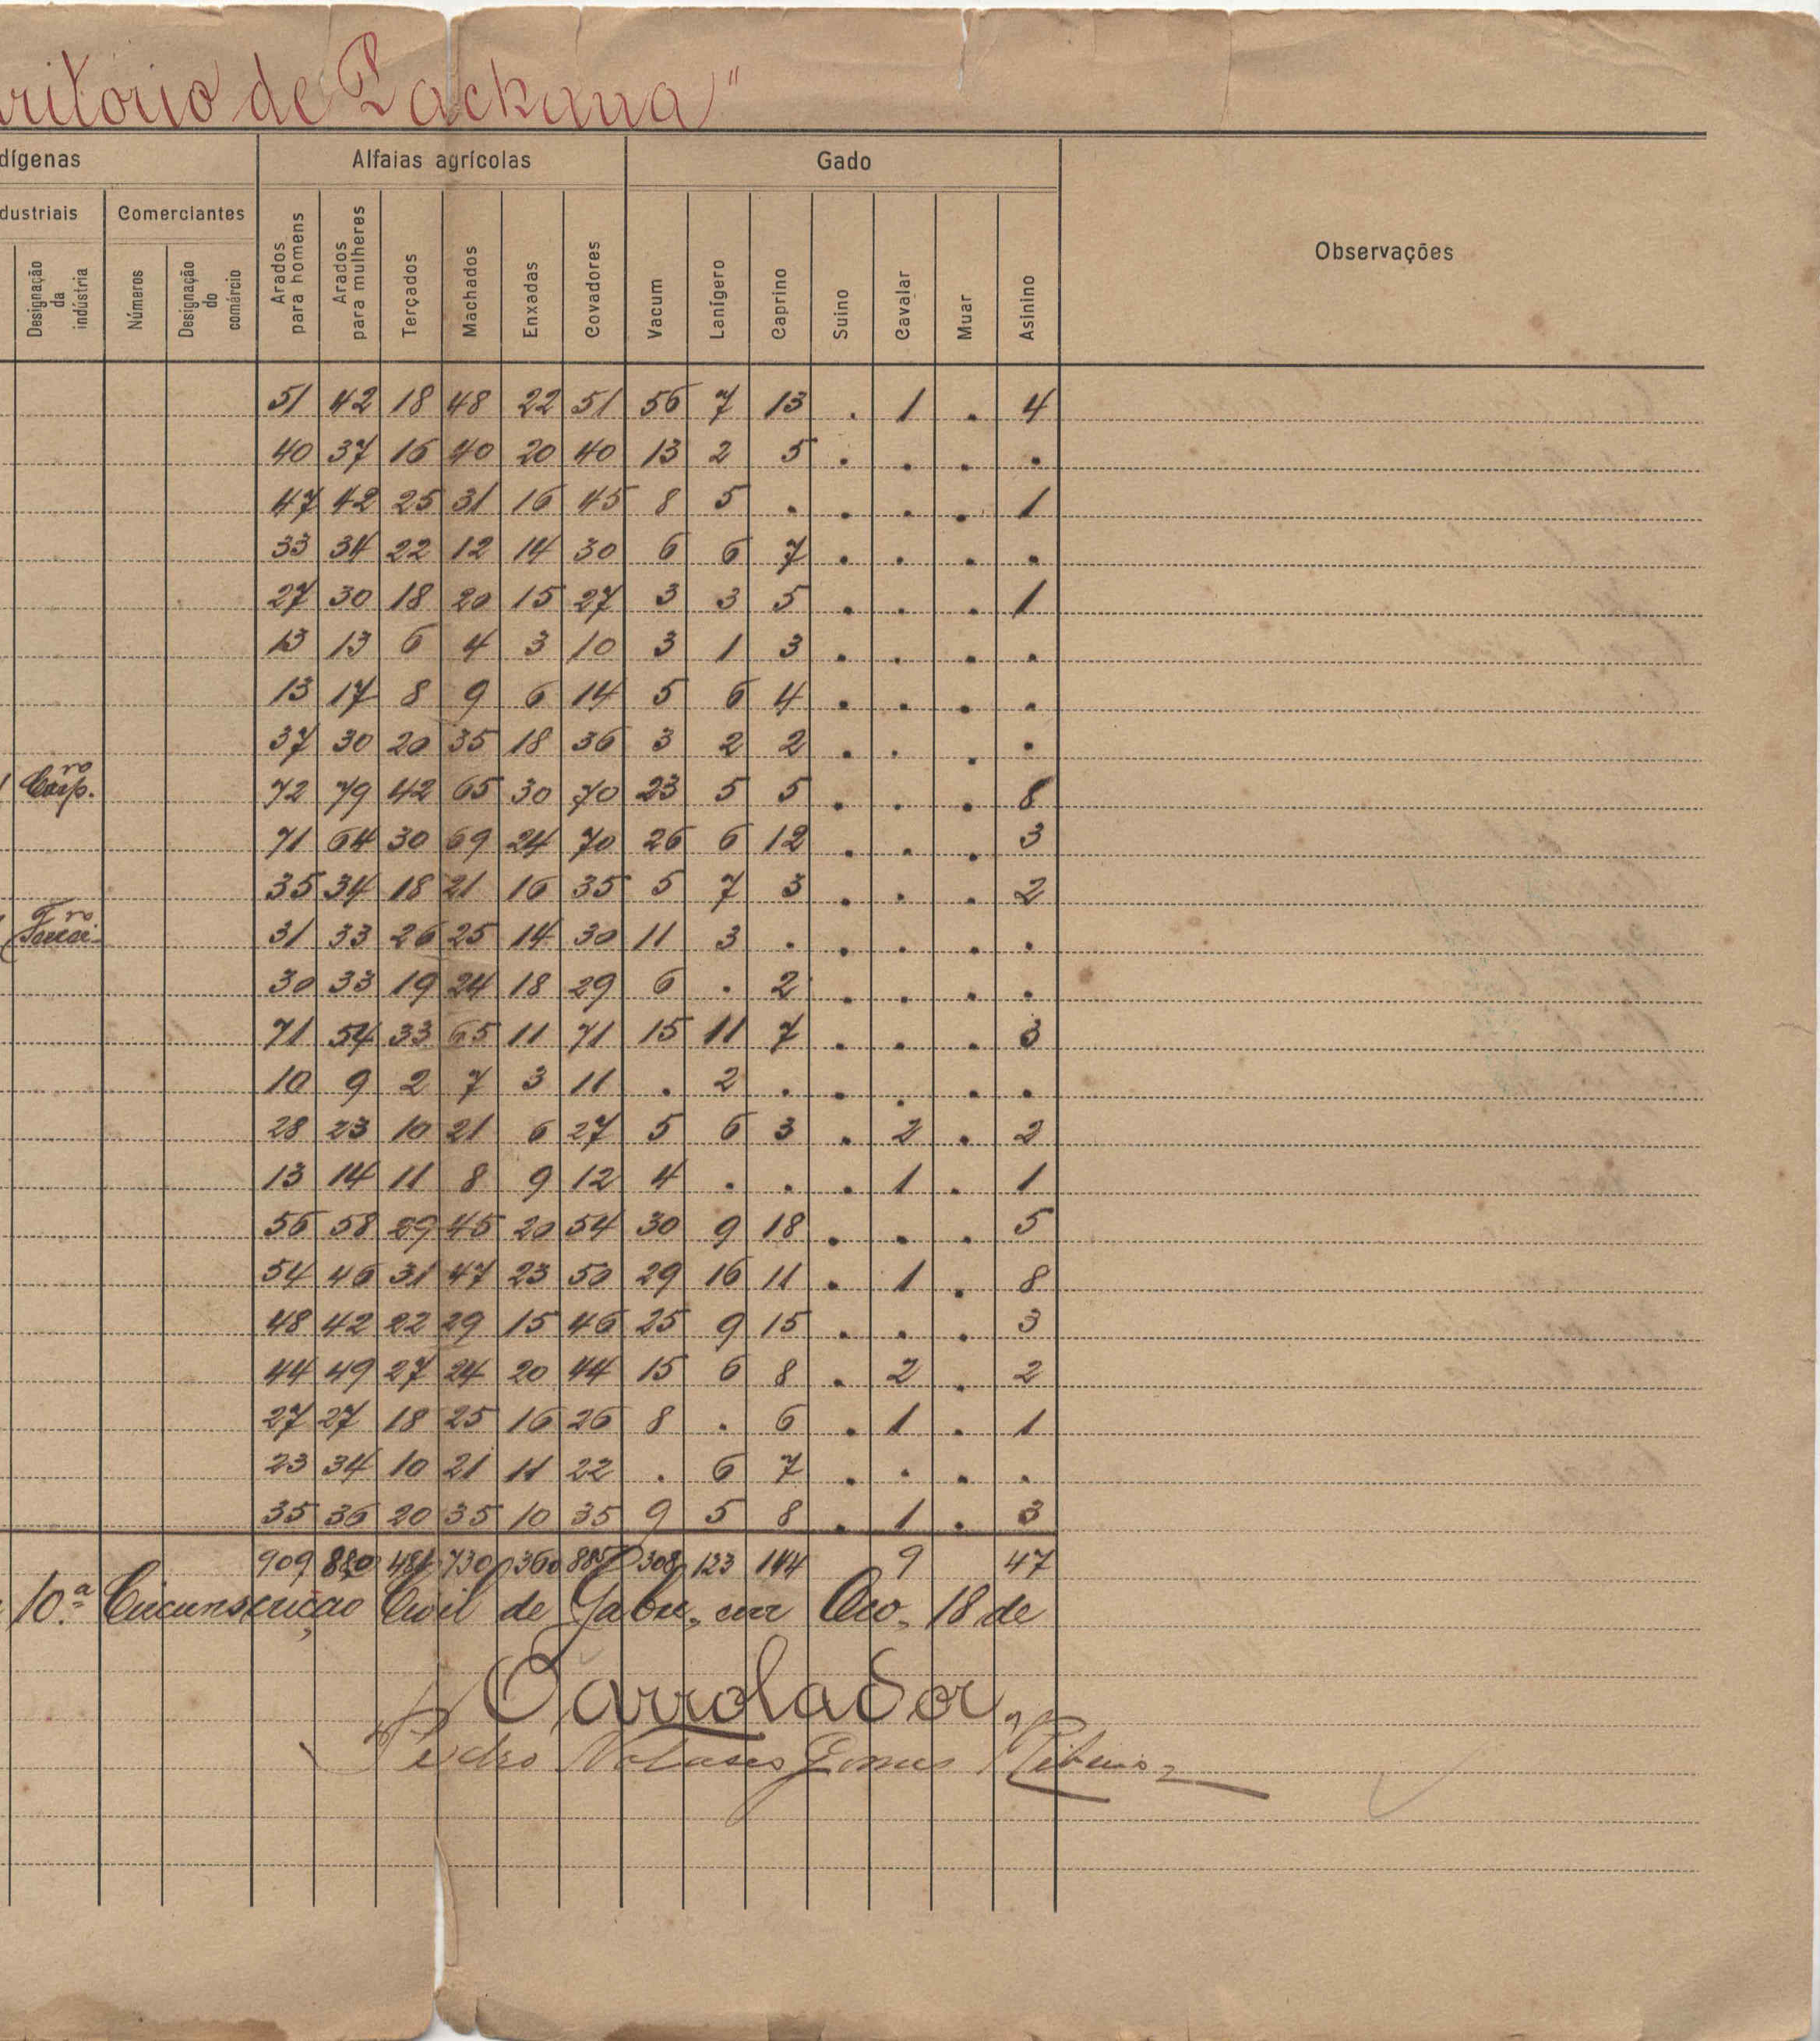 ritorio de Packana"
dígenas Alfaias agrícolas Gado Observações
dustriais Comerciantes
Designação da indústria Números Designação do comércio Arados para homens Arados para mulheres Terçados Machados Enxadas Covadores Vacum Lanígero Caprino Suino Cavalar Muar Asinino
51 42 18 48 22 51 56 7 13 . 1 . 4
40 37 16 40 20 40 13 2 5 . . . .
47 42 25 31 16 45 8 5 . . . . 1
33 34 22 12 14 30 6 6 7 . . . .
27 30 18 20 15 27 3 3 5 . . . 1
13 13 6 4 3 10 3 1 3 . . . .
13 17 8 9 6 14 5 6 4 . . . .
37 30 20 35 18 36 3 2 2 . . . .
Carp.ro 72 79 42 65 30 70 23 5 5 . . . 8
71 64 30 69 24 70 26 6 12 . . . 3
35 34 18 21 16 35 5 7 3 . . . 2
31 33 26 25 14 30 11 3 . . . . .
30 33 19 24 18 29 6 . 2 . . . .
71 54 33 65 11 71 15 11 7 . . . 3
10 9 2 7 3 11 . 2 . . . . .
28 23 10 21 6 27 5 6 3 . 2 . 2
13 14 11 8 9 12 4 . . . 1 . 1
56 58 29 45 20 54 30 9 18 . . . 5
54 46 31 47 23 50 29 16 11 . 1 . 8
48 42 22 29 15 46 25 9 15 . . . 3
44 49 27 24 20 44 15 6 8 . 2 . 2
27 27 18 25 16 26 8 . 6 . 1 . 1
23 34 10 21 11 22 . 6 7 . . . .
35 36 20 35 10 35 9 5 8 . 1 . 3
909 880 481 730 360 885 308 123 144 9 47
10.ª Circunscrição Civil de Gabu, em Oco, 18 de
O arrolador,
Pedro Nolasco Gomes Ribeiro